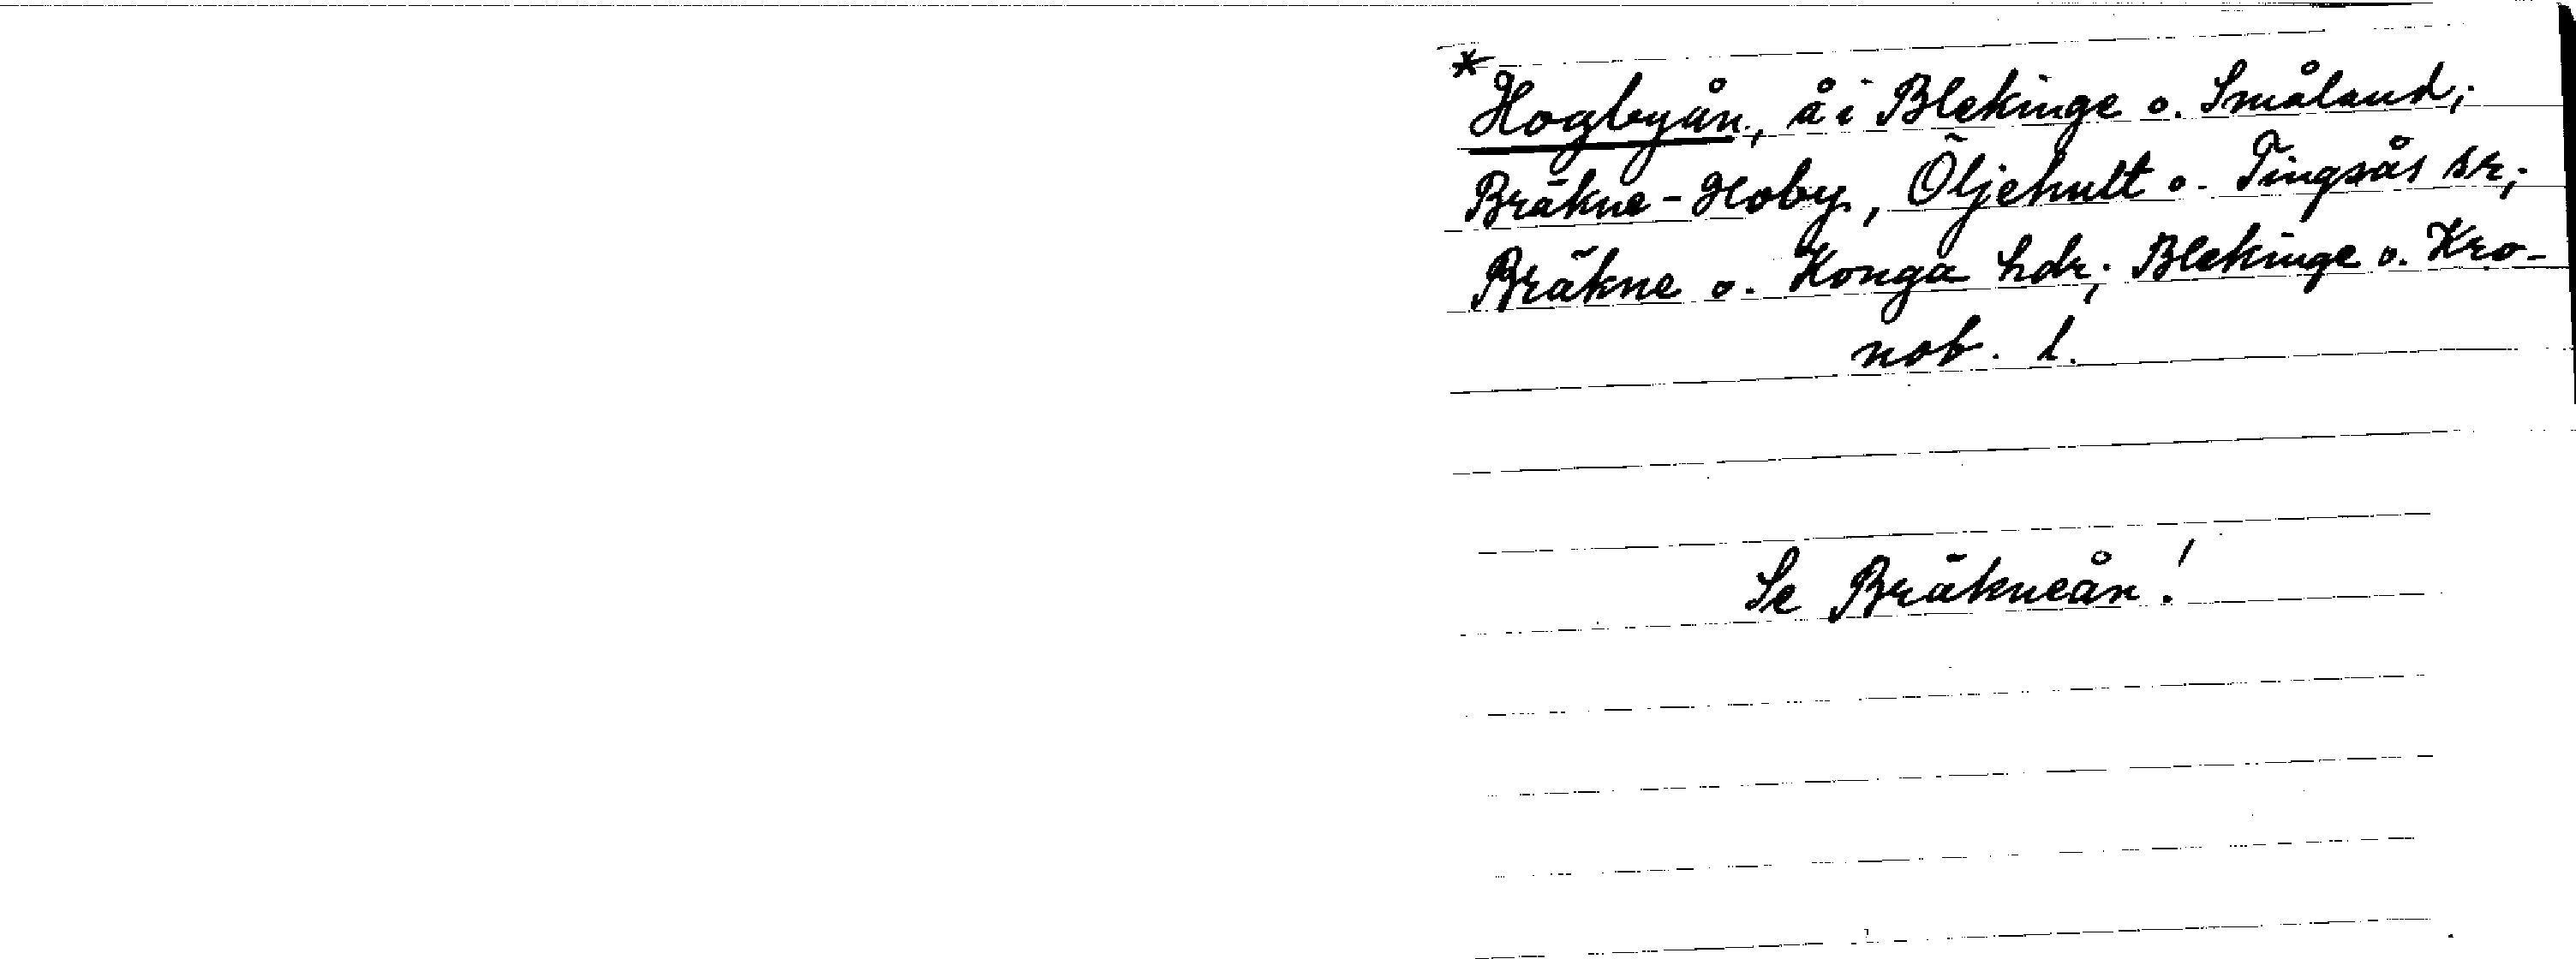 * Hogbyån, å i Blekinge o. Småland;
Bräkne-Hoby, Öljehult o. Tingsås sr;
Bräkne o. Konga hdr; Blekinge o. Kro-
nob. l.
Se Bräkneån!